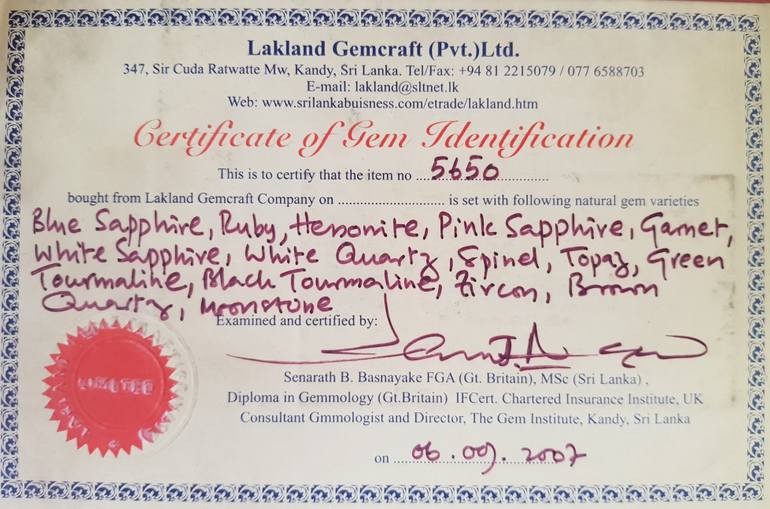 Lakland Gemcraft (Pvt.)Ltd.
347, Sir Cuda Ratwatte Mw, Kandy, Sri Lanka. Tel/Fax: +94 81 2215079 / 077 6588703
E-mail: lakland@sltnet.lk
Web: www.srilankabuisness.com/etrade/lakland.htm
Certificate of Gem Identification
This is to certify that the item no ....5650..............
bought from Lakland Gemcraft Company on ........................... is set with following natural gem varieties
Blue Sapphire, Ruby, Hessonite, Pink Sapphire, Garnet,
White Sapphire, White Quartz, Spinel, Topaz, Green
Tourmaline, Black Tourmaline, Zircon, Brown
Quartz, Moonstone
Examined and certified by:
Senarath B. Basnayake FGA (Gt. Britain), MSc (Sri Lanka) ,
Diploma in Gemmology (Gt.Britain) IFCert. Chartered Insurance Institute, UK
Consultant Gmmologist and Director, The Gem Institute, Kandy, Sri Lanka
on ....06.09.2007
LIMITED